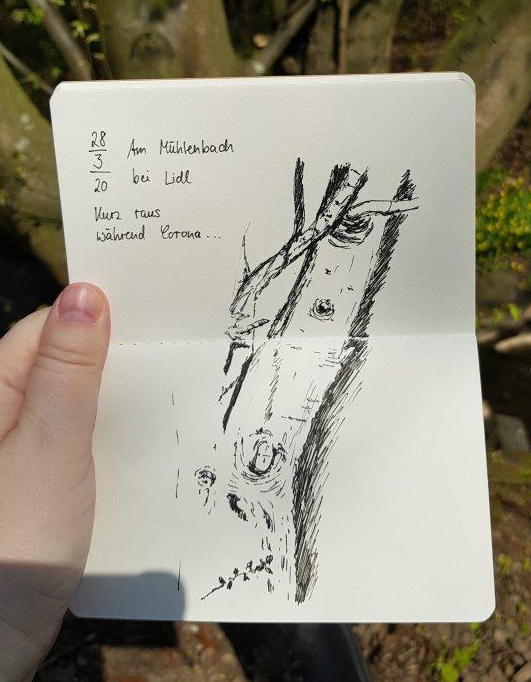 28
3
20
Am Mühlenbach
bei Lidl
Kurz raus
während Corona...